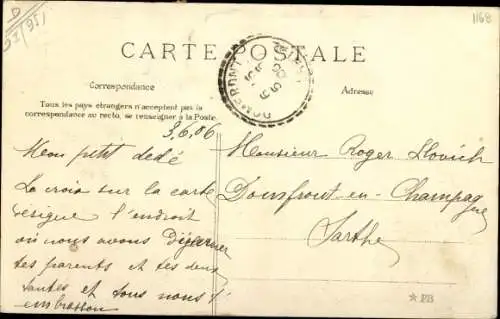 1168
D
51 (95)
CARTE POSTALE
DOMFRONT
Correspondance
Adresse
Tous les pays étrangers n'acceptent pas la
correspondance au recto, se renseigner à la Poste.
3.6.06
Mon petit dédé
La croix sur la carte
désigne l'endroit
où nous avons déjeuner
tes parents et tes deux
tantes et tous nous t'
embrassons
Monsieur Roger
Domfront-en-Champagne
Sarthe
ÉB